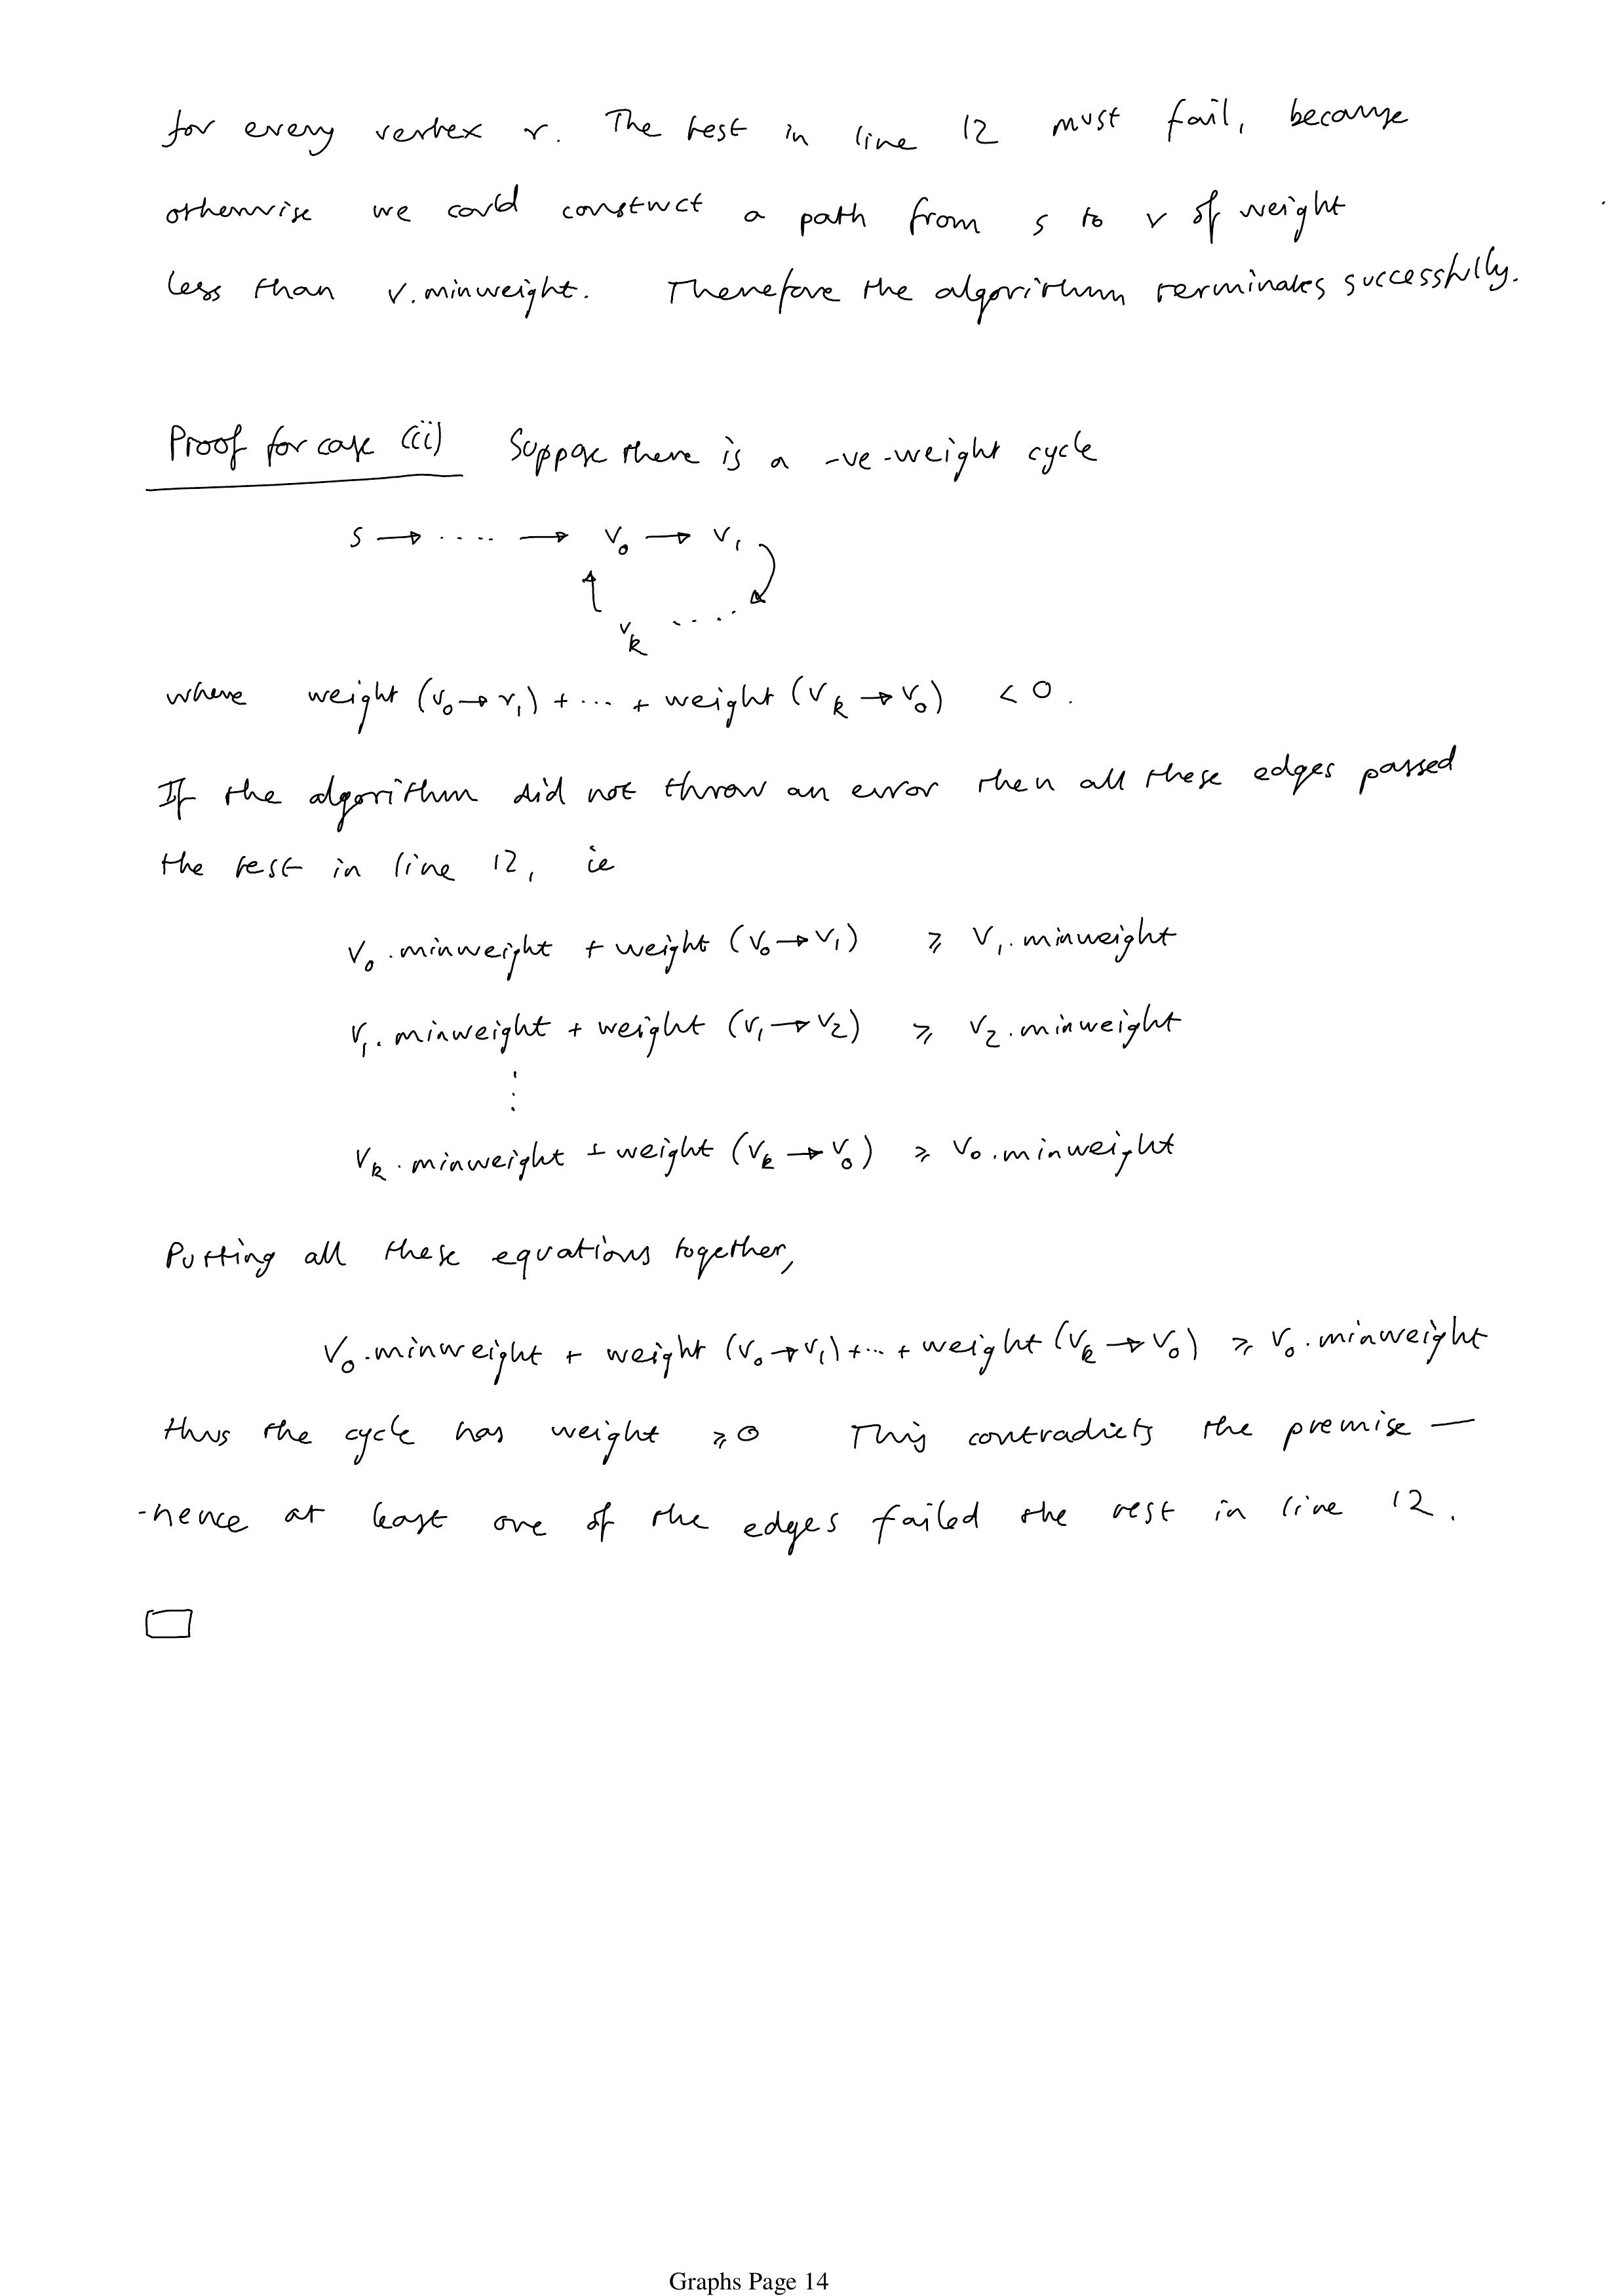 for every vertex v. The test in line 12 must fail, because
otherwise we could construct a path from s to v of weight
less than v.minweight. Therefore the algorithm terminates successfully.
Proof for case (ii) Suppose there is a -ve-weight cycle
s → ····· → v₀ → v₁
vₖ ·····
where weight (v₀→v₁) + ··· + weight (vₖ→v₀) < 0.
If the algorithm did not throw an error then all these edges passed
the test in line 12, ie
v₀.minweight + weight (v₀→v₁) ⩾ v₁.minweight
v₁.minweight + weight (v₁→v₂) ⩾ v₂.minweight
⋮
vₖ.minweight + weight (vₖ→v₀) ⩾ v₀.minweight
Putting all these equations together,
v₀.minweight + weight (v₀→v₁)+···+ weight (vₖ→v₀) ⩾ v₀.minweight
thus the cycle has weight ⩾0 This contradicts the premise —
-hence at least one of the edges failed the test in line 12.
□
Graphs Page 14